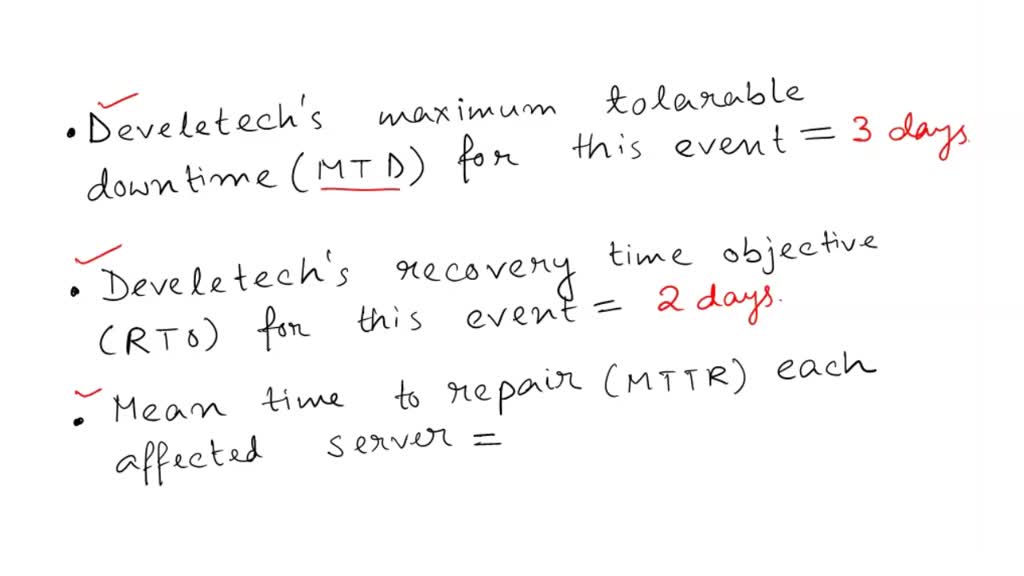 • Develetech's maximum tolarable
downtime (MTD) for this event = 3 days.
• Develetech's recovery time objective
(RTO) for this event = 2 days.
• Mean time to repair (MTTR) each
affected server =